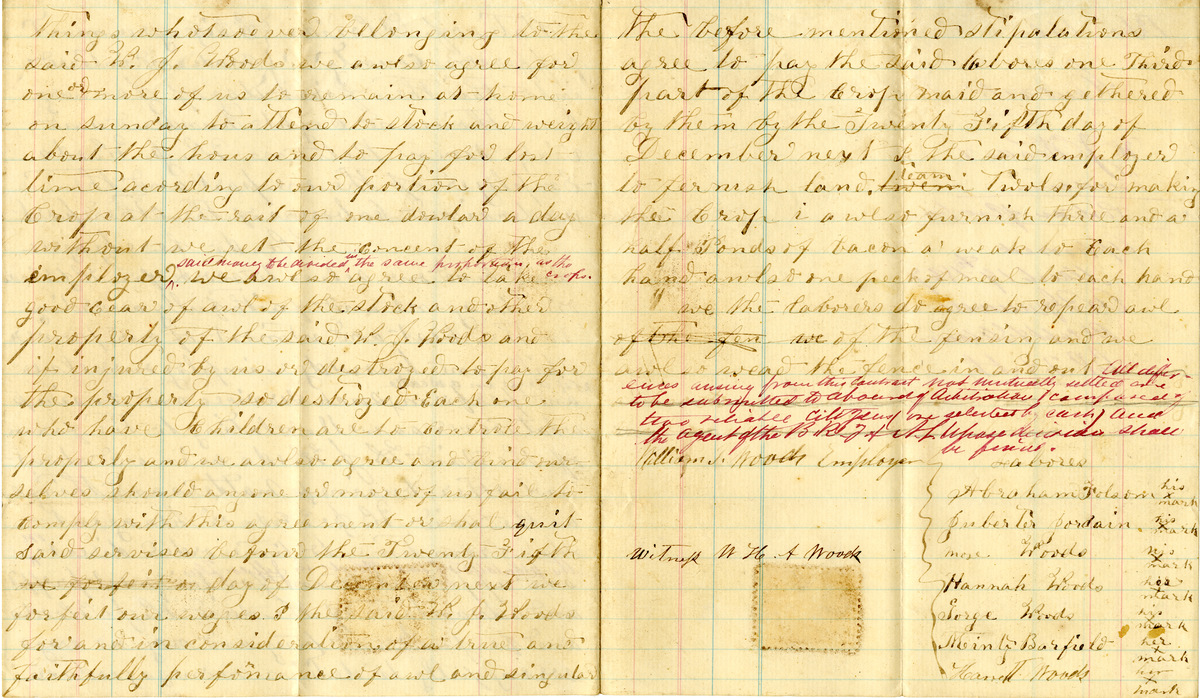 things whotsoever belonging to the
said W. J. Woods we awlso agree for
one or more of us to remain at home
on sunday to attend to stock and weight
about the hous and to pay for lost
time acording to our portion of the
Crop at the rait of one dowlar a day
without we get the concent of the
said money to be divided in the same proportion, as the crops.
employer, we awlso agree to take
good cear of awl of the stock and other
property of the said W. J. Woods and
if injured by us or destroyed to pay for
the property so destroyed Each one
who have Children are to controle the
properly and we awlso agree and bind our-
selves should anyone or more of us fail to
comply with this agreement or shal quit
said servises befour the Twenty Fifth
we forfeit day of December next we
forfeit our wages I the said W. J. Woods
for and in consideration of a true and
faithfully performance of awl and singular
the before mentioned stipalations
agree to pay the said labores one Third
part of the Crop maid and gethered
by them by the Twenty Fifth day of
December next I the said employer
to fernish land, team Twols for making
the Crop i awlso furnish three and a
half Ponds of bacon a weak to Each
hand awlso one peck of meal to each hand
we the Laborers do agree to repear awl
of the fen we of the fensing and we
awlso the fence in and out All differ-
ences arising from this contract not mutually settled are
to be submitted to a board of Arbitration (composed of
two reliable Citizens, one selected by each) and
the agent of the B R F & A L whose decision shall
be final.
William J. Woods Employer Labores
Abraham Folsom his x mark
Juberter Jordain his x mark
mose Woods his x mark
Witness W H A Woods
Hannah Woods her x mark
Gorge Woods his x mark
Minty Barfield her x mark
Harett Woods her x mark